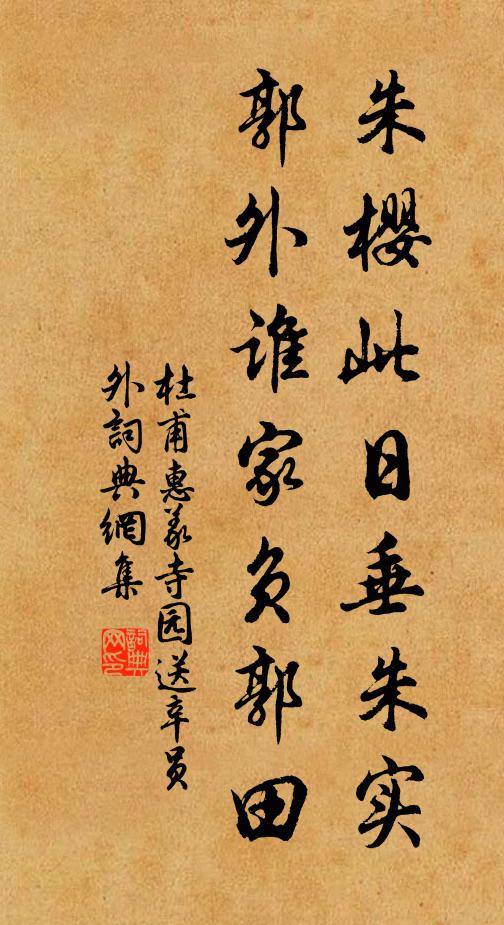 朱櫻此日垂朱实
郭外谁家负郭田
杜甫惠义寺园送辛员
外詞典網集
詞典
网印